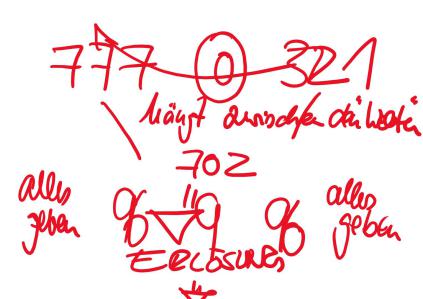 777 0 321
hängt zwischen den Welten
702
alles 96 99 96 alles
geben geben
ERLÖSUNG